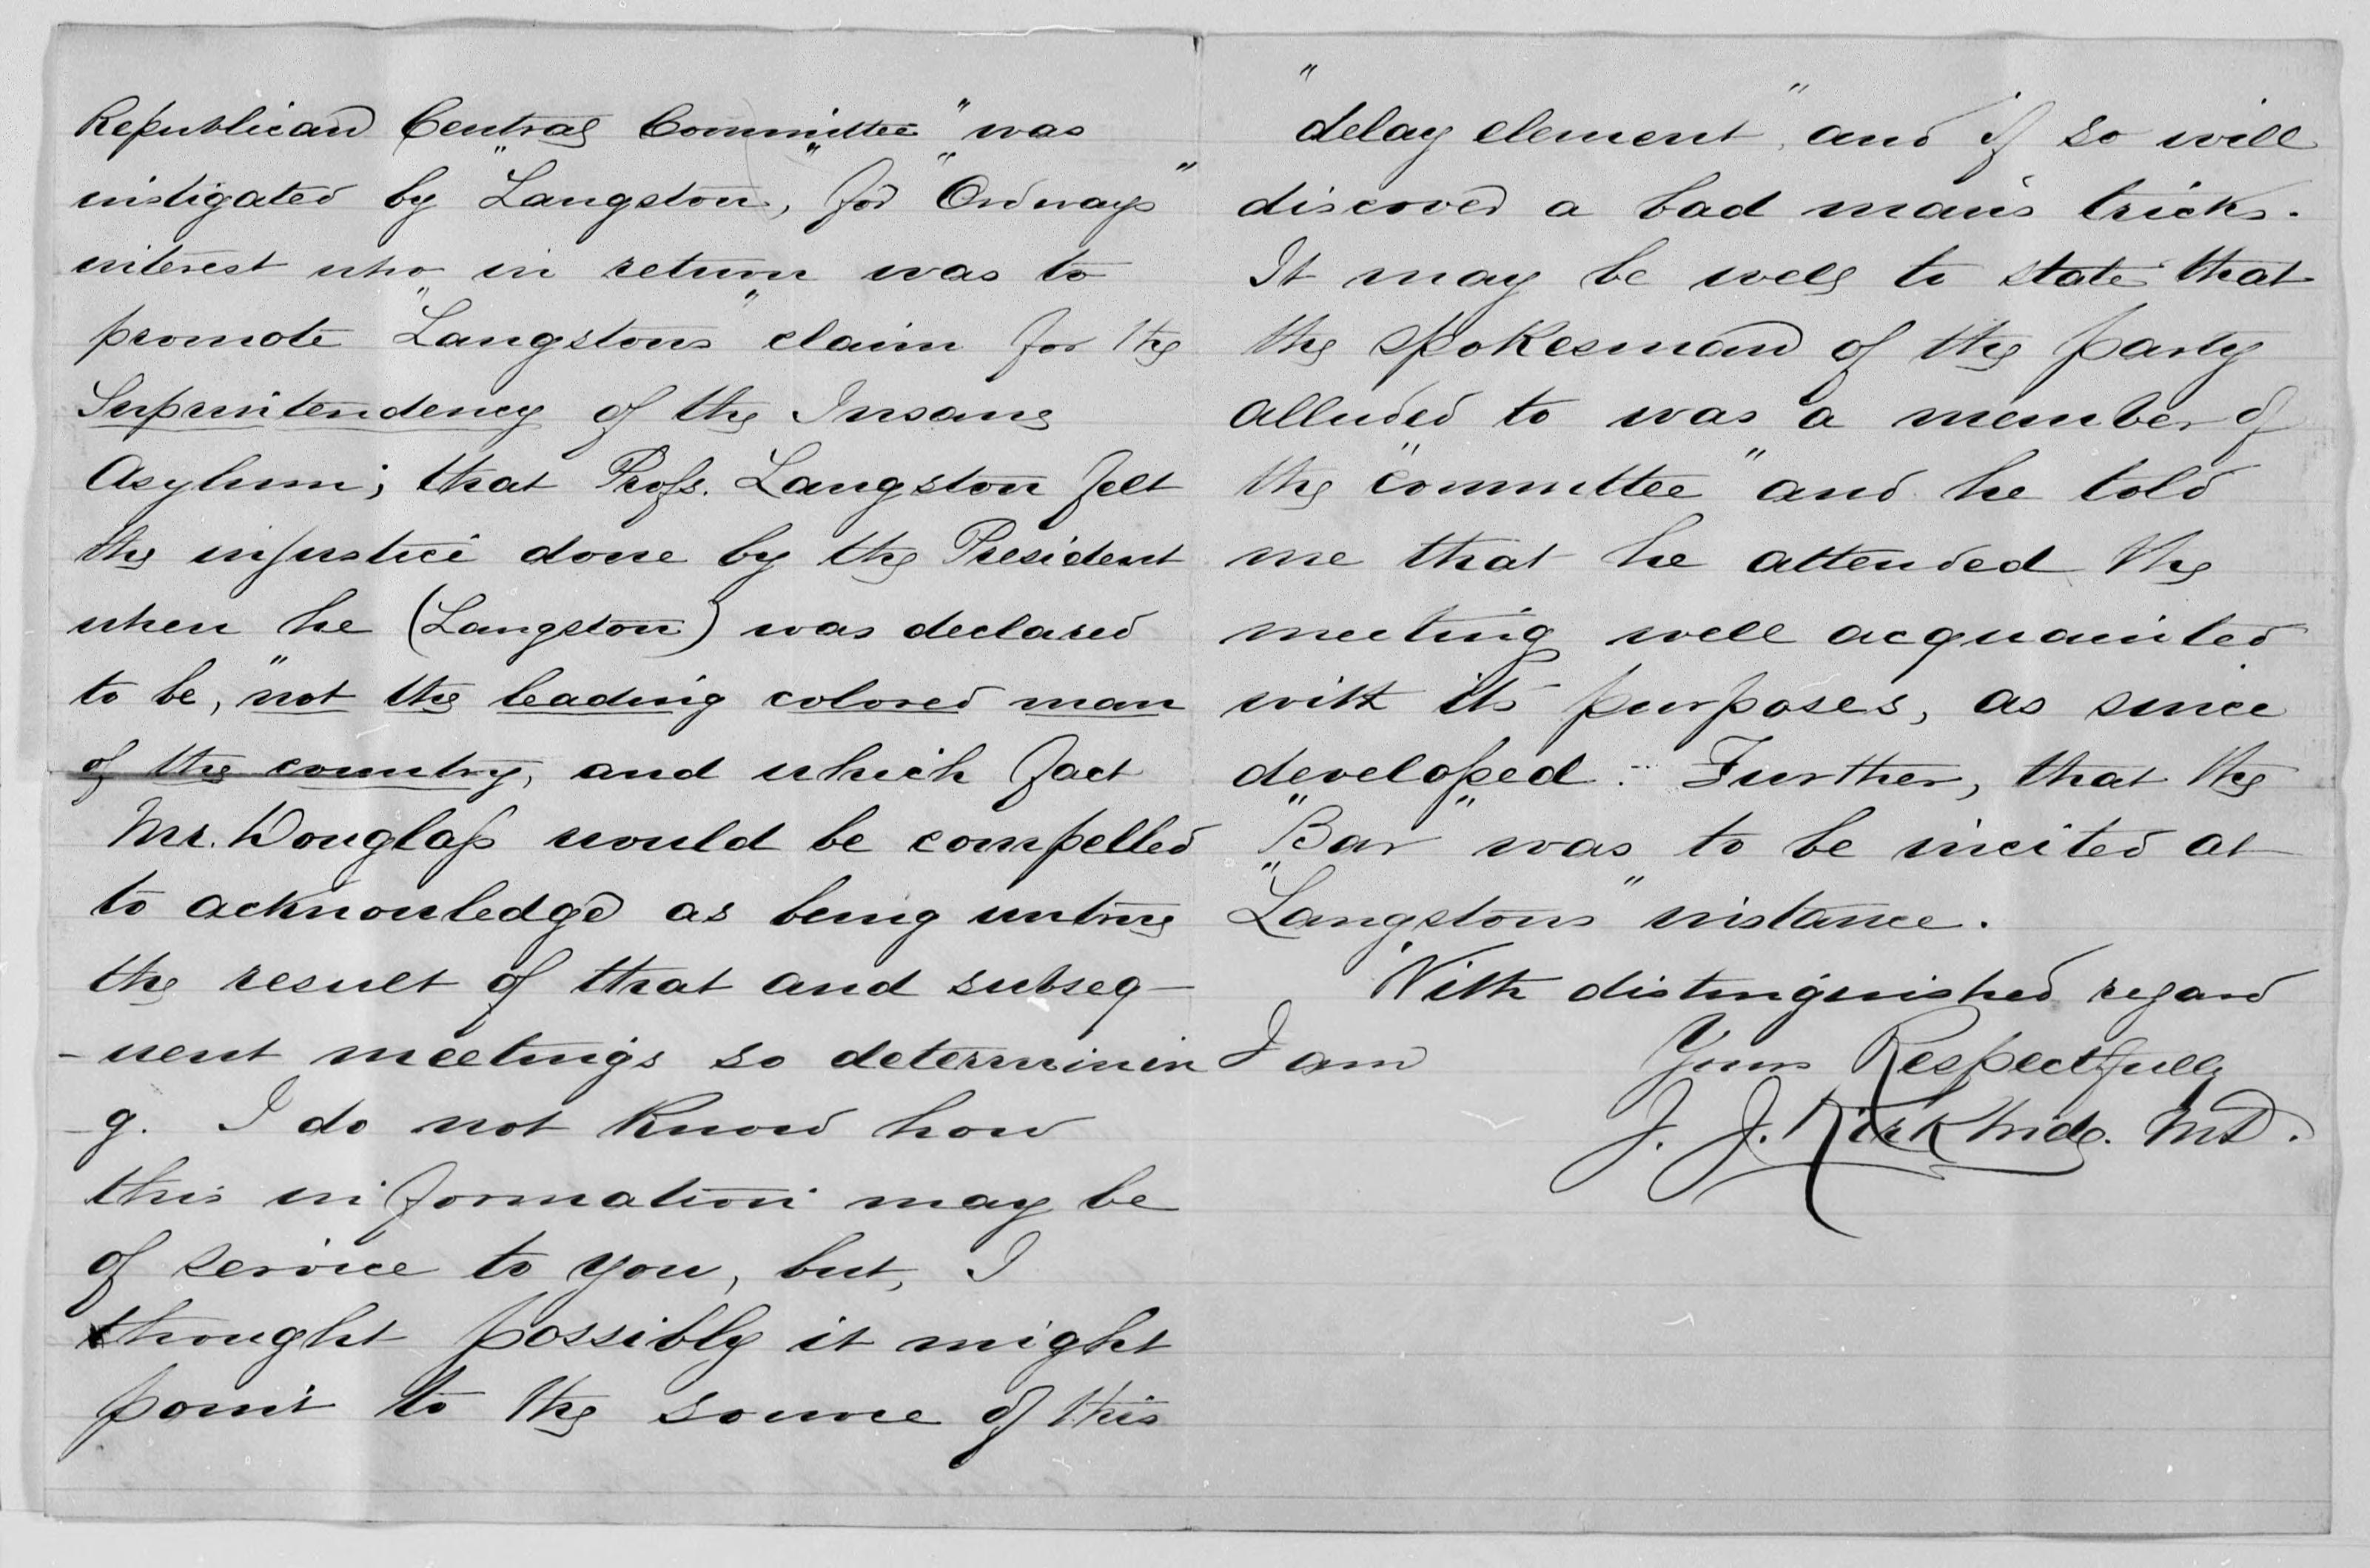 Republican Central Committee" was
instigated by "Langston," for "Ordways"
interest who in return was to
promote "Langstons" claim for the
Superintendency of the Insane
Asylum; that Profs. Langston felt
the injustice done by the President
when he (Langston) was declared
to be, "not the leading colored man
of the country, and which fact
Mr. Douglass would be compelled
to acknowledge as being untrue
the result of that and subseq-
-uent meetings so determinin
-g. I do not know how
this information may be
of service to you, but, I
thought possibly it might
point to the source of this
"delay element", and if so will
discover a bad man's tricks.
It may be well to state that
the spokesman of the party
alluded to was a member of
the "committee" and he told
me that he attended the
meeting well acquainted
with its purposes, as since
developed. Further, that the
"Bar" was to be incited at
"Langstons" instance.
With distinguished regard
I am Yours Respectfully
J. J. Kirkbride. MD.